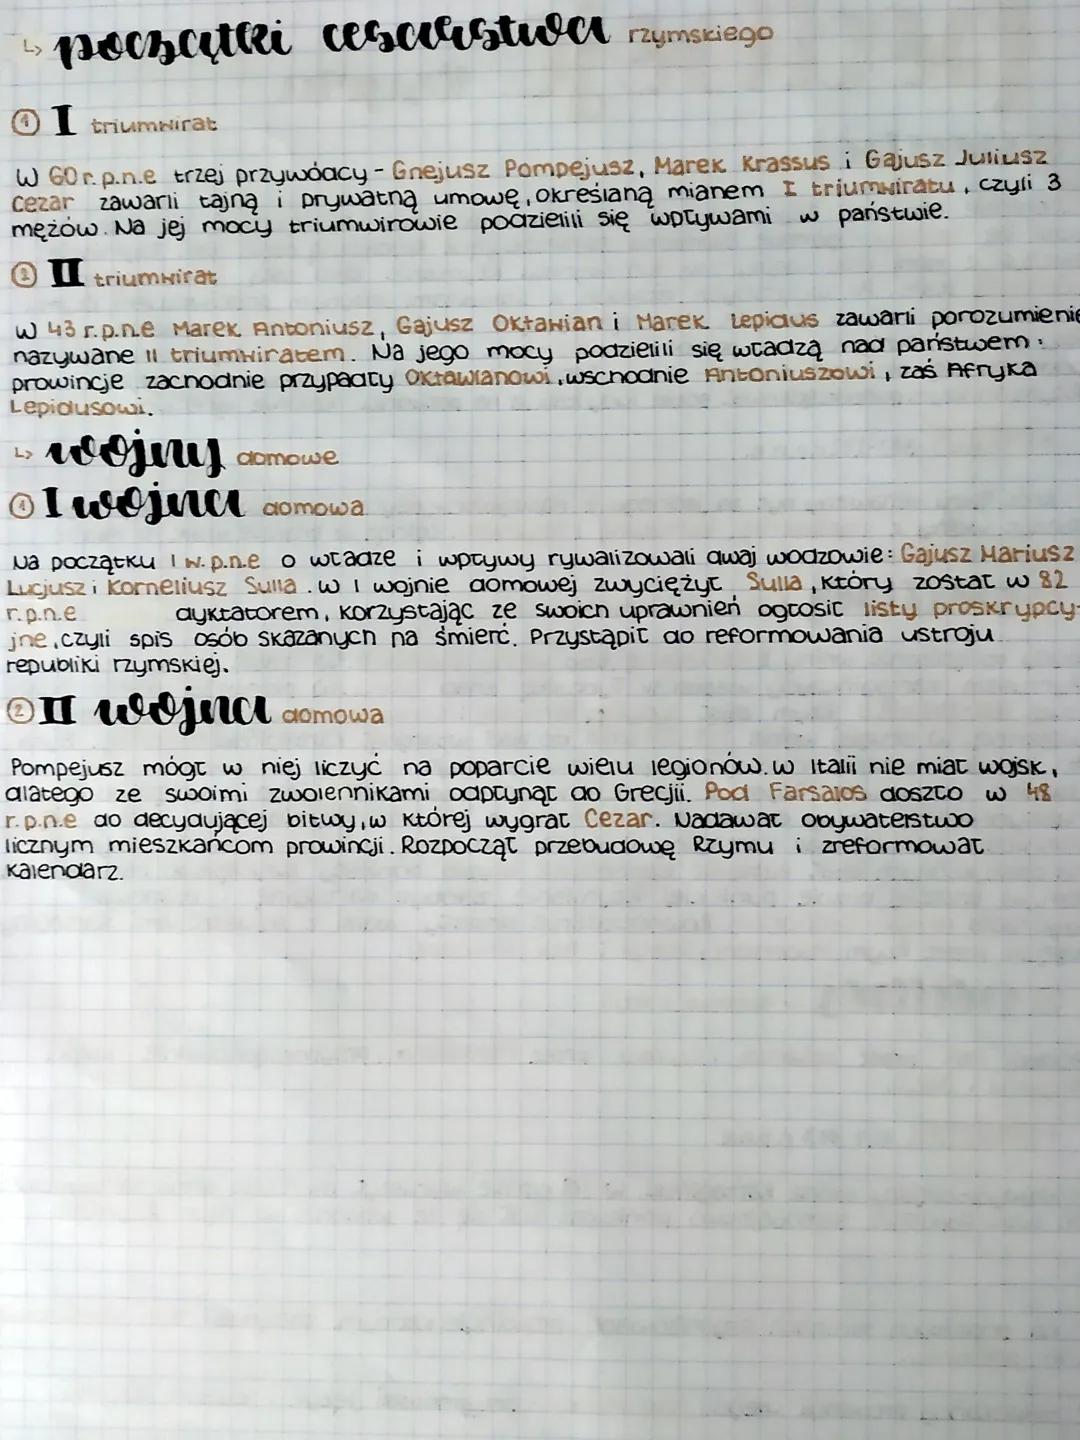 ↳ początki cesarstwa rzymskiego
① I triumwirat
W 60 r.p.n.e trzej przywódcy - Gnejusz Pompejusz, Marek Krassus i Gajusz Juliusz
Cezar zawarli tajną i prywatną umowę, określaną mianem I triumwiratu, czyli 3
mężów. Na jej mocy triumwirowie podzielili się wpływami w państwie.
② II triumwirat
W 43 r.p.n.e Marek Antoniusz, Gajusz Oktawian i Marek Lepidus zawarli porozumienie
nazywane II triumwiratem. Na jego mocy podzielili się władzą nad państwem:
prowincje zachodnie przypadły Oktawianowi, wschodnie Antoniuszowi, zaś Afryka
Lepidusowi.
↳ wojny domowe
① I wojna domowa
Na początku I w. p.n.e o władze i wpływy rywalizowali dwaj wodzowie: Gajusz Mariusz
Lucjusz i Korneliusz Sulla. w I wojnie domowej zwyciężył Sulla, który został w 82
r.p.n.e dyktatorem, korzystając ze swoich uprawnień ogłosił listy proskrypcy-
jne, czyli spis osób skazanych na śmierć. Przystąpił do reformowania ustroju
republiki rzymskiej.
② II wojna domowa
Pompejusz mógł w niej liczyć na poparcie wielu legionów. w Italii nie miał wojsk,
dlatego ze swoimi zwolennikami odpłynął do Grecji. Pod Farsalos doszło w 48
r.p.n.e do decydującej bitwy, w której wygrał Cezar. Nadawał obywatelstwo
licznym mieszkańcom prowincji. Rozpoczął przebudowę Rzymu i zreformował
kalendarz.